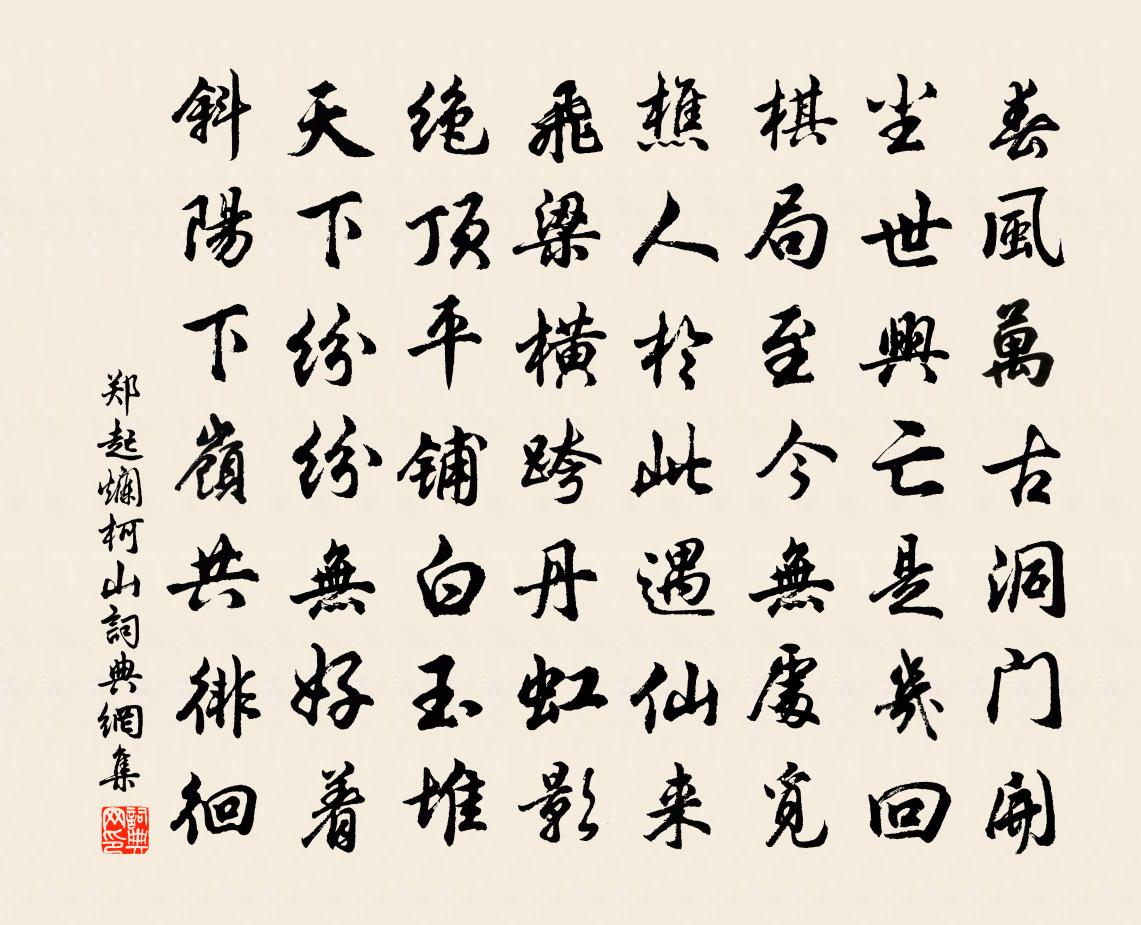 春風萬古洞门開
尘世興亡是幾回
棋局至今無處覓
樵人於此遇仙来
飛梁橫跨丹虹影
绝顶平铺白玉堆
天下纷纷無好着
斜陽下嶺共徘徊
郑起爛柯山詞典網集
詞典网印